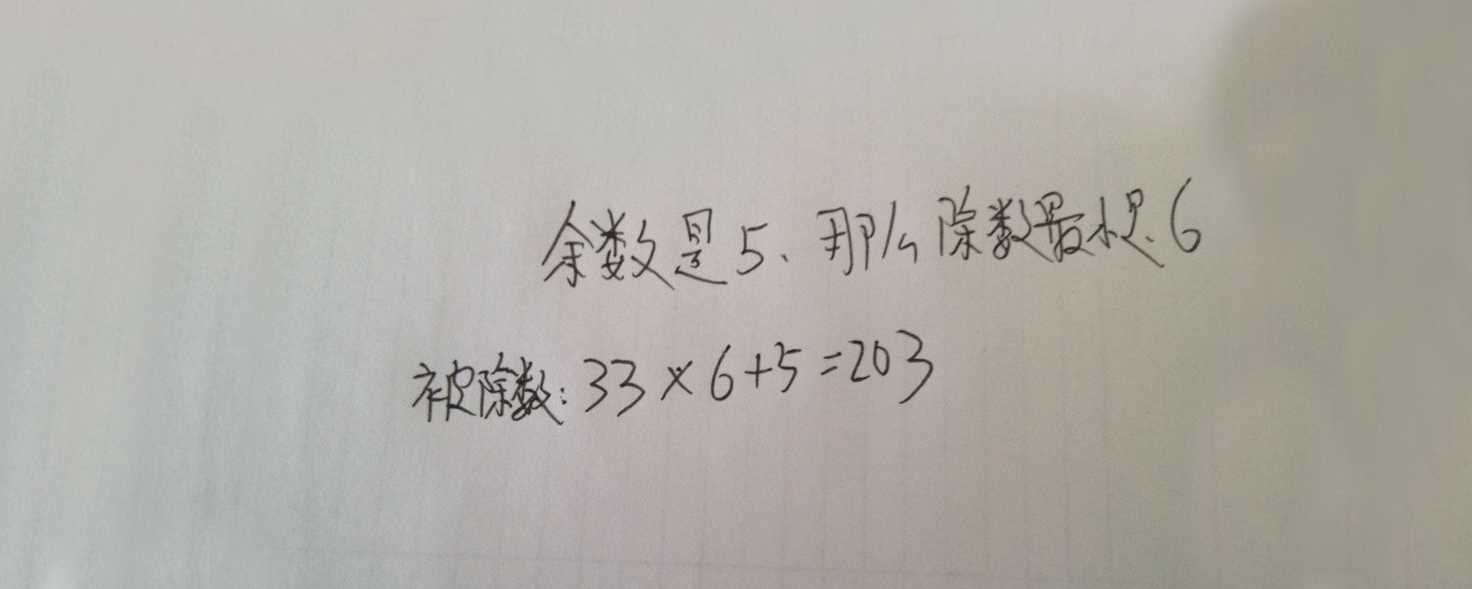 余数是5、那么除数最小是.6
被除数:33×6+5=203